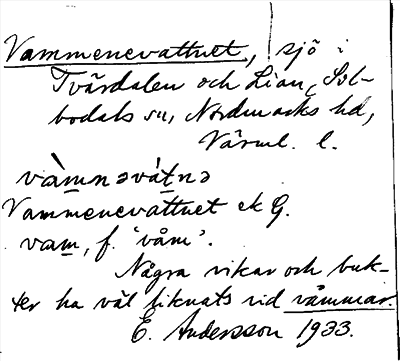 Vammenevattnet, sjö i
Tvärdalen och Lian, Sil-
bodals sn, Nordmarks hd,
Värml. l.
vàm̲nəvát̲nə
Vammenevattnet ek G.
vam̲, f. 'våm'.
Några vikar och buk-
ter ha väl liknats vid våmmar.
E. Andersson 1933.